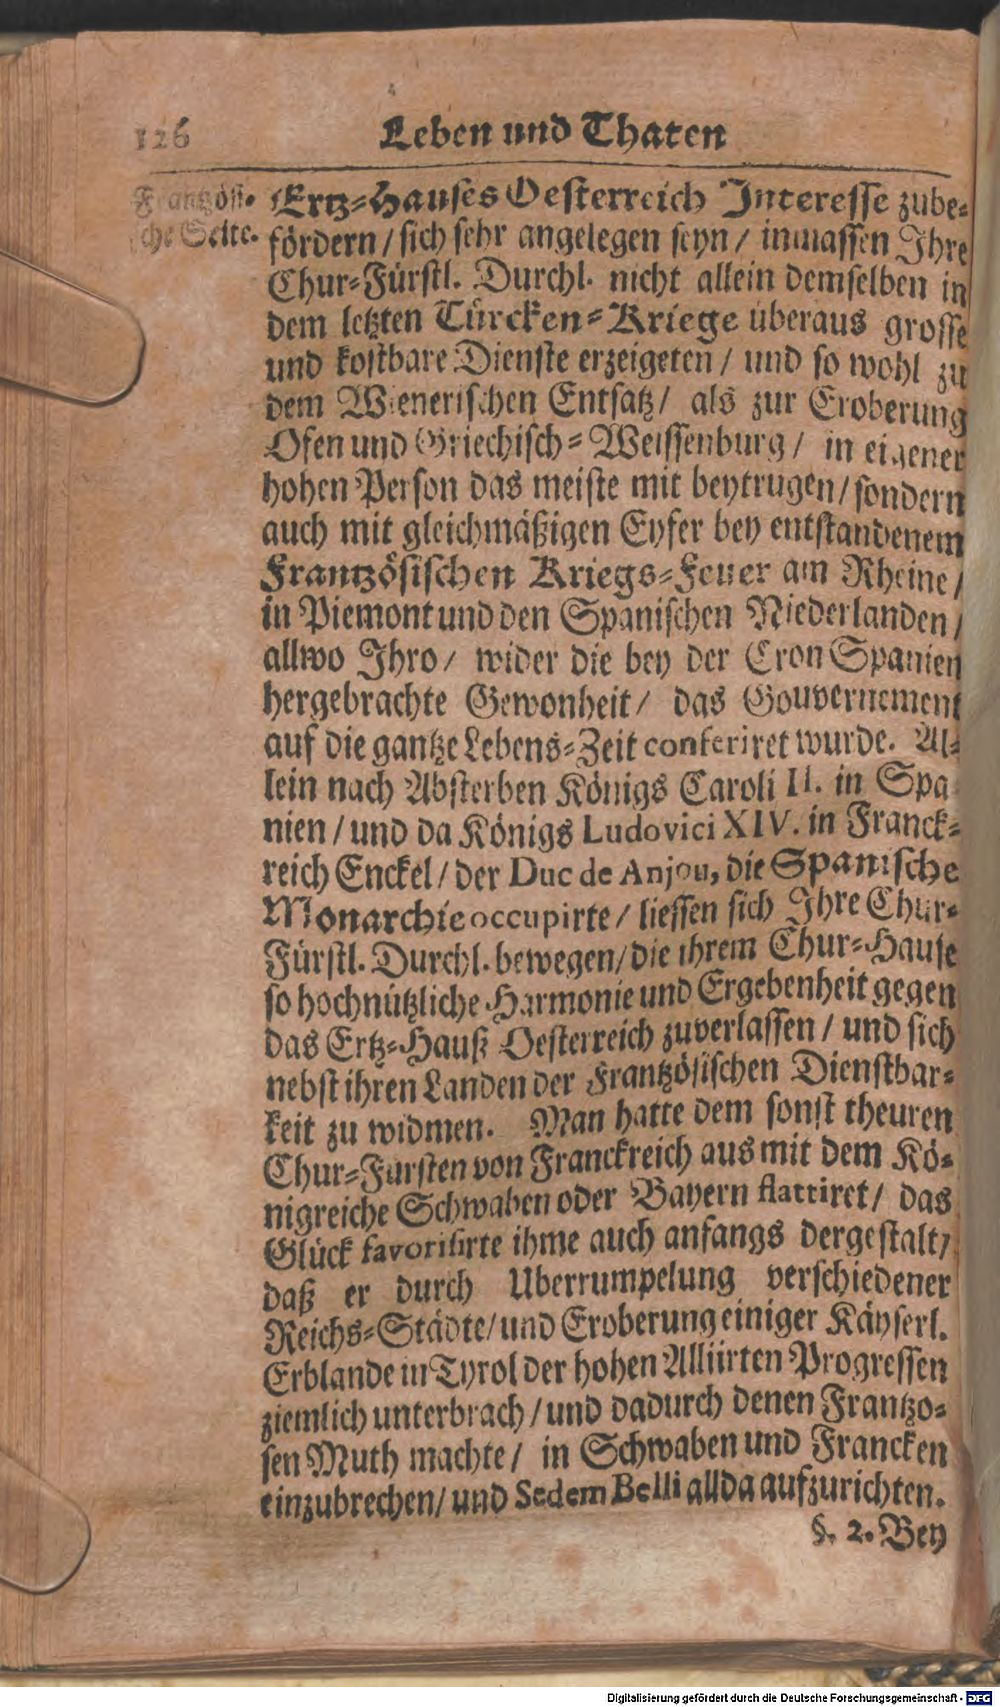 126
Leben und Thaten
Frantzösi-
sche Seite.
Ertz-Hauses Oesterreich Interesse zube-
fördern / sich sehr angelegen seyn / inmassen Ihre
Chur-Fürstl. Durchl. nicht allein demselben in
dem letzten Türcken-Kriege überaus grosse
und kostbare Dienste erzeigeten / und so wohl zu
dem Wienerischen Entsatz / als zur Eroberung
Ofen und Griechisch-Weissenburg / in eigener
hohen Person das meiste mit beytrugen / sondern
auch mit gleichmäßigen Eyfer bey entstandenem
Frantzösischen Kriegs-Feuer am Rheine /
in Piemont und den Spanischen Niederlanden /
allwo Ihro / wider die bey der Cron Spanien
hergebrachte Gewonheit / das Gouvernement
auf die gantze Lebens-Zeit conferiret wurde. Al-
lein nach Absterben Königs Caroli II. in Spa
nien / und da Königs Ludovici XIV. in Franck-
reich Enckel / der Duc de Anjou, die Spanische
Monarchie occupirte / liessen sich Ihre Chur-
Fürstl. Durchl. bewegen / die ihrem Chur-Hause
so hochnützliche Harmonie und Ergebenheit gegen
das Ertz-Hauß Oesterreich zuverlassen / und sich
nebst ihren Landen der Frantzösischen Dienstbar-
keit zu widmen. Man hatte dem sonst theuren
Chur-Fürsten von Franckreich aus mit dem Kö-
nigreiche Schwaben oder Bayern flattiret / das
Glück favorisirte ihme auch anfangs dergestalt /
daß er durch Uberrumpelung verschiedener
Reichs-Städte / und Eroberung einiger Käyserl.
Erblande in Tyrol der hohen Alliirten Progressen
ziemlich unterbrach / und dadurch denen Frantzo-
sen Muth machte / in Schwaben und Francken
einzubrechen / und Sedem Belli allda aufzurichten.
§. 2. Bey
Digitalisierung gefördert durch die Deutsche Forschungsgemeinschaft - DFG